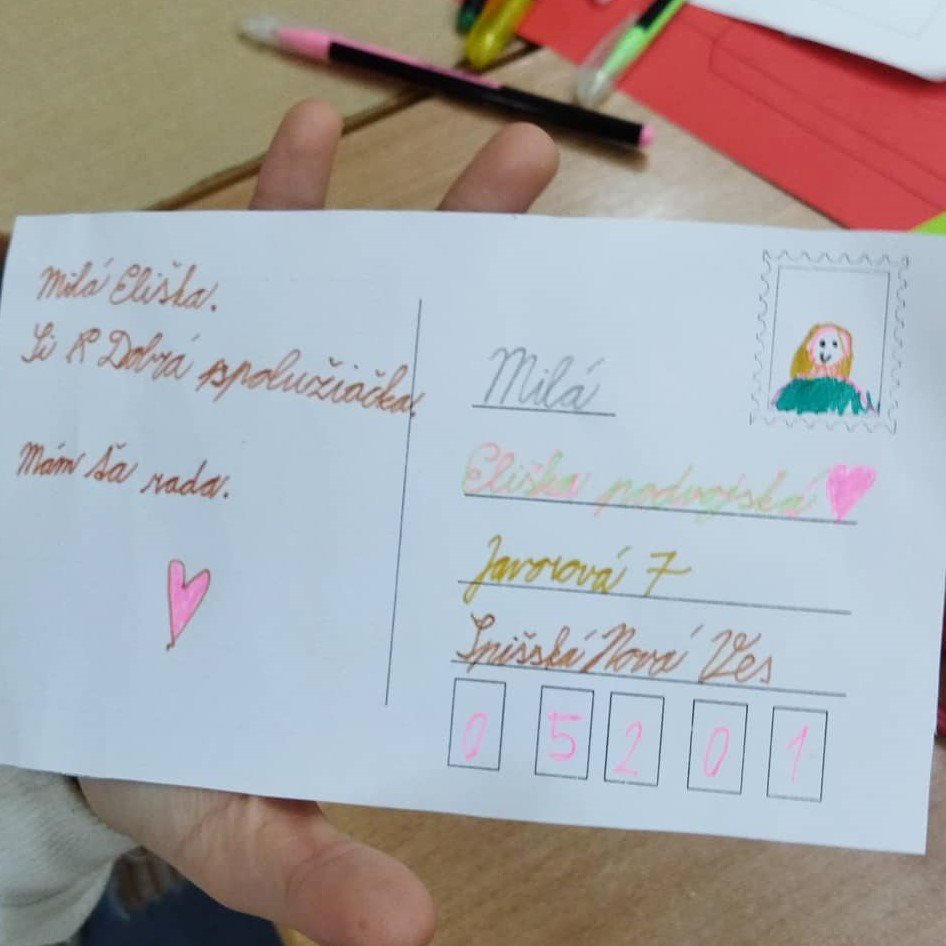 Milá Eliška.
Si R Dobrá spolužiačka.
Mám ťa rada.
Milá
Eliška podvojská
Javorová 7
Spišská Nová Ves
0 5 2 0 1